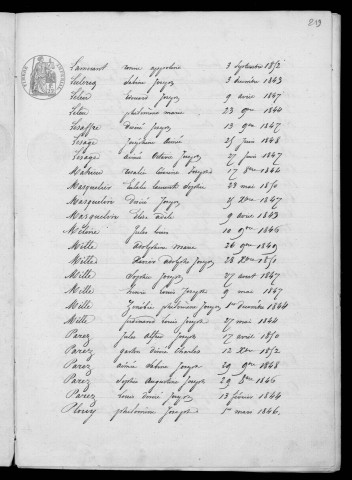 219
Lammant marie appoline 3 Septembre 1852
Leclercq sabine Joseph 3 Décembre 1843
Leleu Edouard Joseph 9 avril 1847
Leleu philomène marie 23 9bre 1844
Lesaffre Désiré Joseph 13 9bre 1847
Lesage Joséphine Aimée 25 Juin 1848
Lesage aimé Octave Joseph 27 Juin 1847
Mabrun rosalie Joseph 17 8bre 1846
Masquelier Eulalie Sophie 28 mai 1850
Masquelin Désiré Joseph 25 Xbre 1847
Masquelin Elise adèle 9 avril 1843
Méloire Jules Louis 10 9bre 1846
Mille Adolphine marie 26 9bre 1849
Mille Xavier Adolphe Joseph 28 Xbre 1851
Mille Sophie Joseph 27 août 1847
Mille henri Louis Joseph 9 mai 1847
Mille Zénobie philomène Joseph 1er Décembre 1844
Mille ferdinand Louis Joseph 27 mai 1844
Parez Jules Alfred Joseph 17 avril 1850
Parez gaston désiré Charles 12 Xbre 1852
Parez aimée Sabine Joseph 29 9bre 1848
Parez Sophie Augustine Joseph 29 8bre 1846
Parez Louis désiré Joseph 13 février 1844
Plouy philomène Joseph 1er mai 1846.